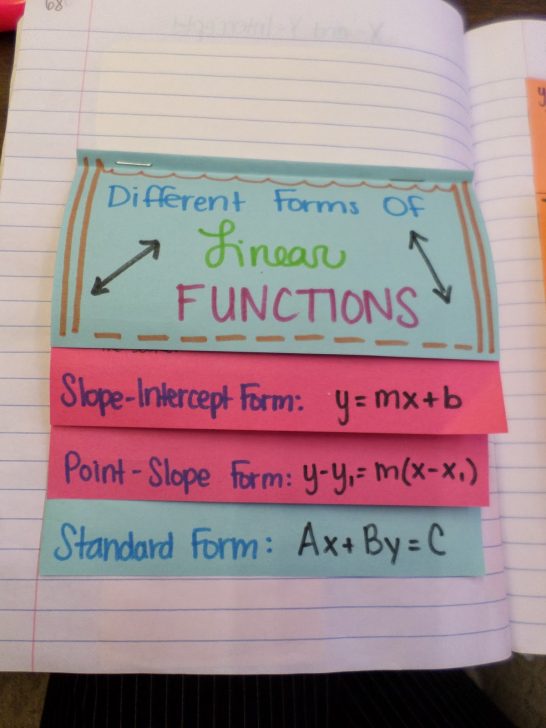 68
Different Forms Of
Linear
FUNCTIONS
Slope-Intercept Form: y = mx + b
Point-Slope Form: y-y₁ = m(x-x₁)
Standard Form: Ax + By = C
y